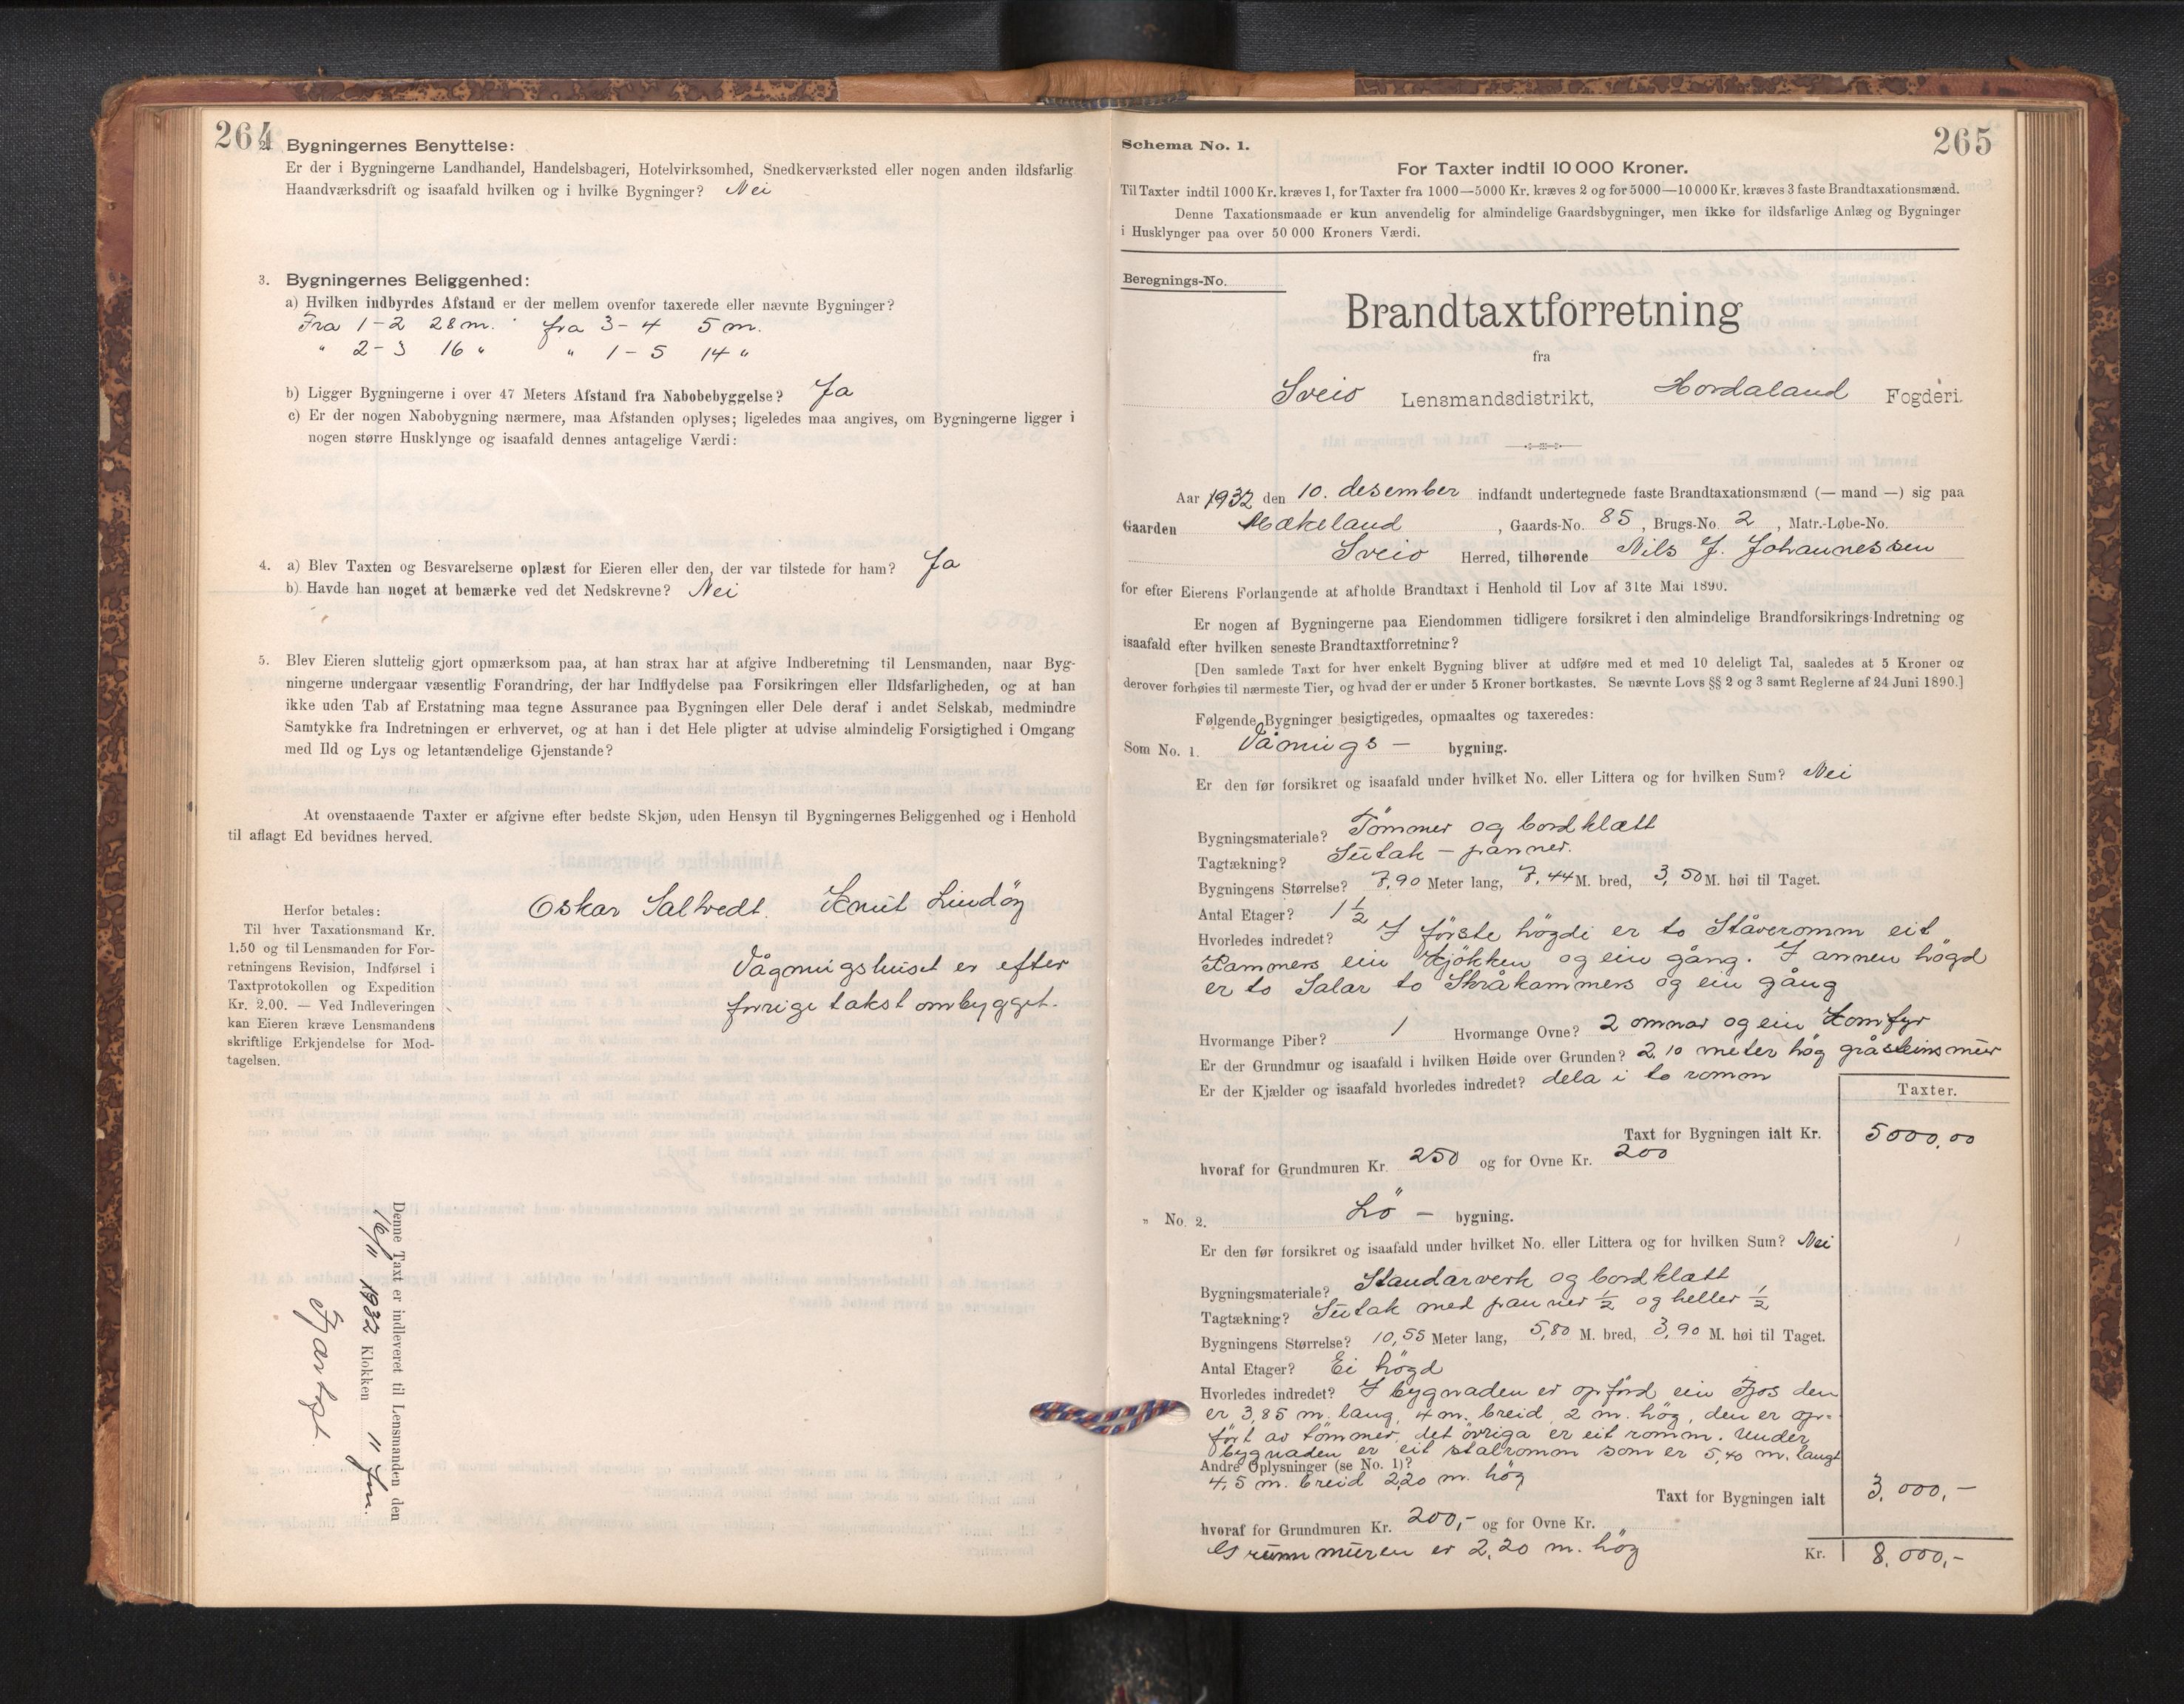 264
2. Bygningernes Benyttelse:
Er der i Bygningerne Landhandel, Handelsbageri, Hotelvirksomhed, Snedkerværksted eller nogen anden ildsfarlig
Haandværksdrift og isaafald hvilken og i hvilke Bygninger? Nei
3. Bygningernes Beliggenhed:
a) Hvilken indbyrdes Afstand er der mellem ovenfor taxerede eller nævnte Bygninger?
Fra 1-2 28 m. fra 3-4 5 m.
" 2-3 16 " " 1-5 14 "
b) Ligger Bygningerne i over 47 Meters Afstand fra Nabobebyggelse? Ja
c) Er der nogen Nabobygning nærmere, maa Afstanden oplyses; ligeledes maa angives, om Bygningerne ligger i
nogen større Husklynge og isaafald dennes antagelige Værdi:
4. a) Blev Taxten og Besvarelserne oplæst for Eieren eller den, der var tilstede for ham? Ja
b) Havde han noget at bemærke ved det Nedskrevne? Nei
5. Blev Eieren sluttelig gjort opmærksom paa, at han strax har at afgive Indberetning til Lensmanden, naar Byg-
ningerne undergaar væsentlig Forandring, der har Indflydelse paa Forsikringen eller Ildsfarligheden, og at han
ikke uden Tab af Erstatning maa tegne Assurance paa Bygningen eller Dele deraf i andet Selskab, medmindre
Samtykke fra Indretningen er erhvervet, og at han i det Hele pligter at udvise almindelig Forsigtighed i Omgang
med Ild og Lys og letantændelige Gjenstande?
At ovenstaaende Taxter er afgivne efter bedste Skjøn, uden Hensyn til Bygningernes Beliggenhed og i Henhold
til aflagt Ed bevidnes herved.
Oskar Salhvedt. Knut Lindöy
Herfor betales:
Til hver Taxationsmand Kr.
1.50 og til Lensmanden for For-
retningens Revision, Indførsel i
Taxtprotokollen og Expedition
Kr. 2.00. — Ved Indleveringen
kan Eieren kræve Lensmandens
skriftlige Erkjendelse for Mod-
tagelsen.
Vågningshuset er efter
forrige takst ombygget.
Denne Taxt er indleveret til Lensmanden den
16/11 1932 Klokken 11 fm.
265
Schema No. 1.
For Taxter indtil 10 000 Kroner.
Til Taxter indtil 1000 Kr. kræves 1, for Taxter fra 1000—5000 Kr. kræves 2 og for 5000—10 000 Kr. kræves 3 faste Brandtaxationsmænd.
Denne Taxationsmaade er kun anvendelig for almindelige Gaardsbygninger, men ikke for ildsfarlige Anlæg og Bygninger
i Husklynger paa over 50 000 Kroners Værdi.
Beregnings-No.
Brandtaxtforretning
fra
Sveio Lensmandsdistrikt, Hordaland Fogderi.
Aar 1932 den 10. desember indfandt undertegnede faste Brandtaxationsmænd (— mand —) sig paa
Gaarden Mækeland, Gaards-No. 85, Brugs-No. 2, Matr.-Løbe-No.
Sveio Herred, tilhørende Nils J. Johannessen
for efter Eierens Forlangende at afholde Brandtaxt i Henhold til Lov af 31te Mai 1890.
Er nogen af Bygningerne paa Eiendommen tidligere forsikret i den almindelige Brandforsikrings-Indretning og
isaafald efter hvilken seneste Brandtaxtforretning?
[Den samlede Taxt for hver enkelt Bygning bliver at udføre med et med 10 deleligt Tal, saaledes at 5 Kroner og
derover forhøies til nærmeste Tier, og hvad der er under 5 Kroner bortkastes. Se nævnte Lovs §§ 2 og 3 samt Reglerne af 24 Juni 1890.]
Følgende Bygninger besigtigedes, opmaaltes og taxeredes:
Som No. 1. Vånings — bygning.
Er den før forsikret og isaafald under hvilket No. eller Littera og for hvilken Sum? Nei
Bygningsmateriale? Tömmer og bordklætt
Tagtækning? Sutak — panner.
Bygningens Størrelse? 7,90 Meter lang, 7,44 M. bred, 3,50 M. høi til Taget.
Antal Etager? 1 1/2
Hvorledes indredet? I förste högdi er to Ståveromm eit
Kammers ein Kjökken og ein gång. I annen högd
er to Salar to Skråkammers og ein gång
Hvormange Piber? 1 Hvormange Ovne? 2 omnar og ein Komfyr
Er der Grundmur og isaafald i hvilken Høide over Grunden? 2,10 meter hög gråsteinsmur
Er der Kjælder og isaafald hvorledes indredet? dela i to romm
Taxter.
Taxt for Bygningen ialt Kr. 5000,00
hvoraf for Grundmuren Kr. 250 og for Ovne Kr. 200
" No. 2. Lö — bygning.
Er den før forsikret og isaafald under hvilket No. eller Littera og for hvilken Sum? Nei
Bygningsmateriale? Standarverk og bordklætt
Tagtækning? Sutak med panner 1/2 og heller 1/2
Bygningens Størrelse? 10,55 Meter lang, 5,80 M. bred, 3,90 M. høi til Taget.
Antal Etager? Ei högd
Hvorledes indredet? I bygnaden er opförd ein Fjos den
er 3,85 m. lang, 4 m. breid, 2 m. hög, den er op-
fört av tömmer, det övriga er eit romm. Under
bygnaden er eit stalromm som er 5,40 m. langt
Andre Oplysninger (se No. 1)?
4,5 m. breid 2,20 m. hög
Taxt for Bygningen ialt 3.000,-
hvoraf for Grundmuren Kr. 200,- og for Ovne Kr.
Grunnmuren er 2,20 m. hög
Kr. 8.000,-